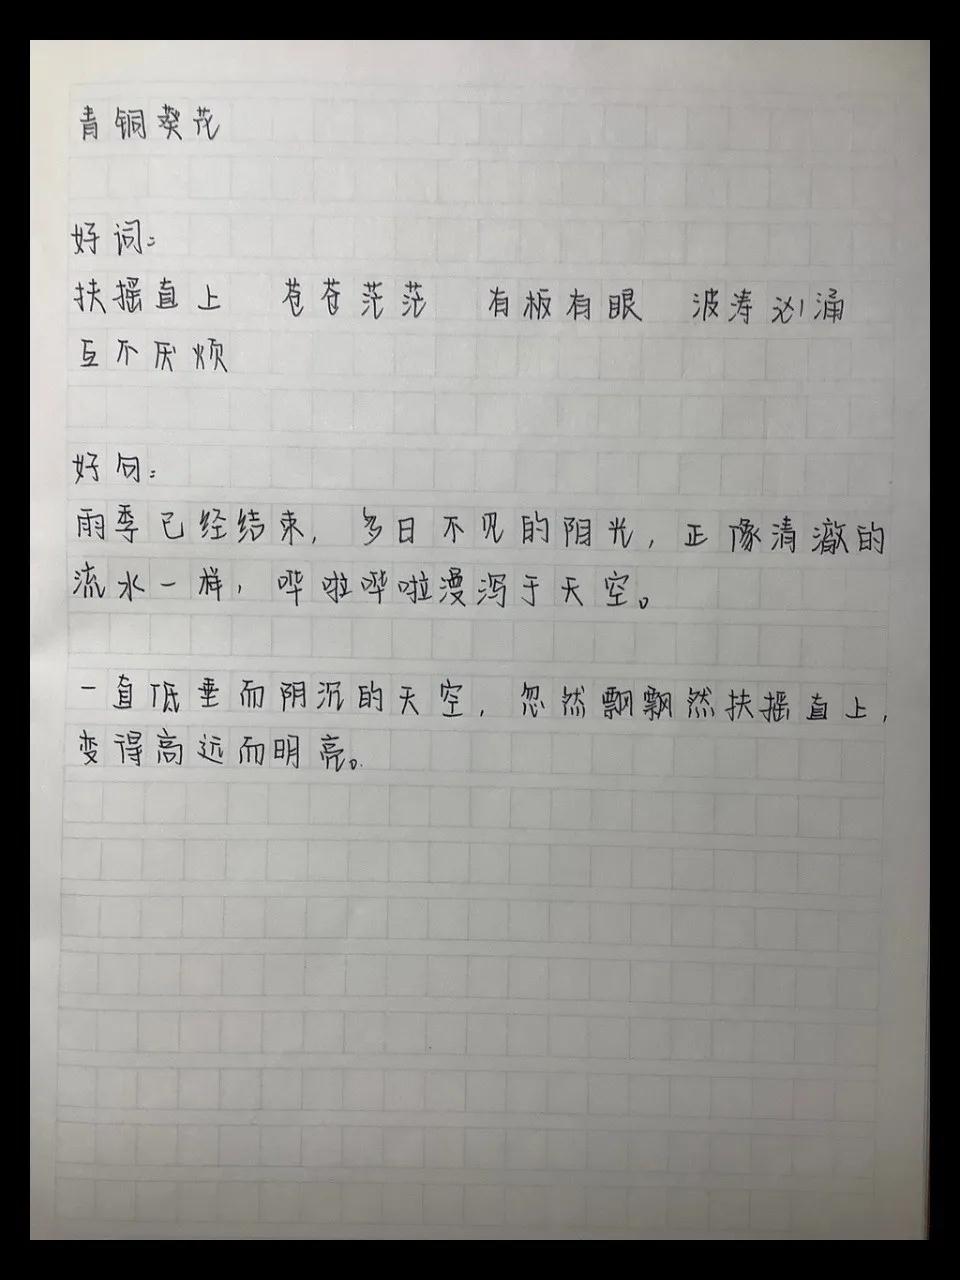 青铜葵花
好词：
扶摇直上 苍苍茫茫 有板有眼 波涛汹涌
互不厌烦
好句：
雨季已经结束，多日不见的阳光，正像清澈的
流水一样，哗啦哗啦漫泻于天空。
一直低垂而阴沉的天空，忽然飘飘然扶摇直上，
变得高远而明亮。